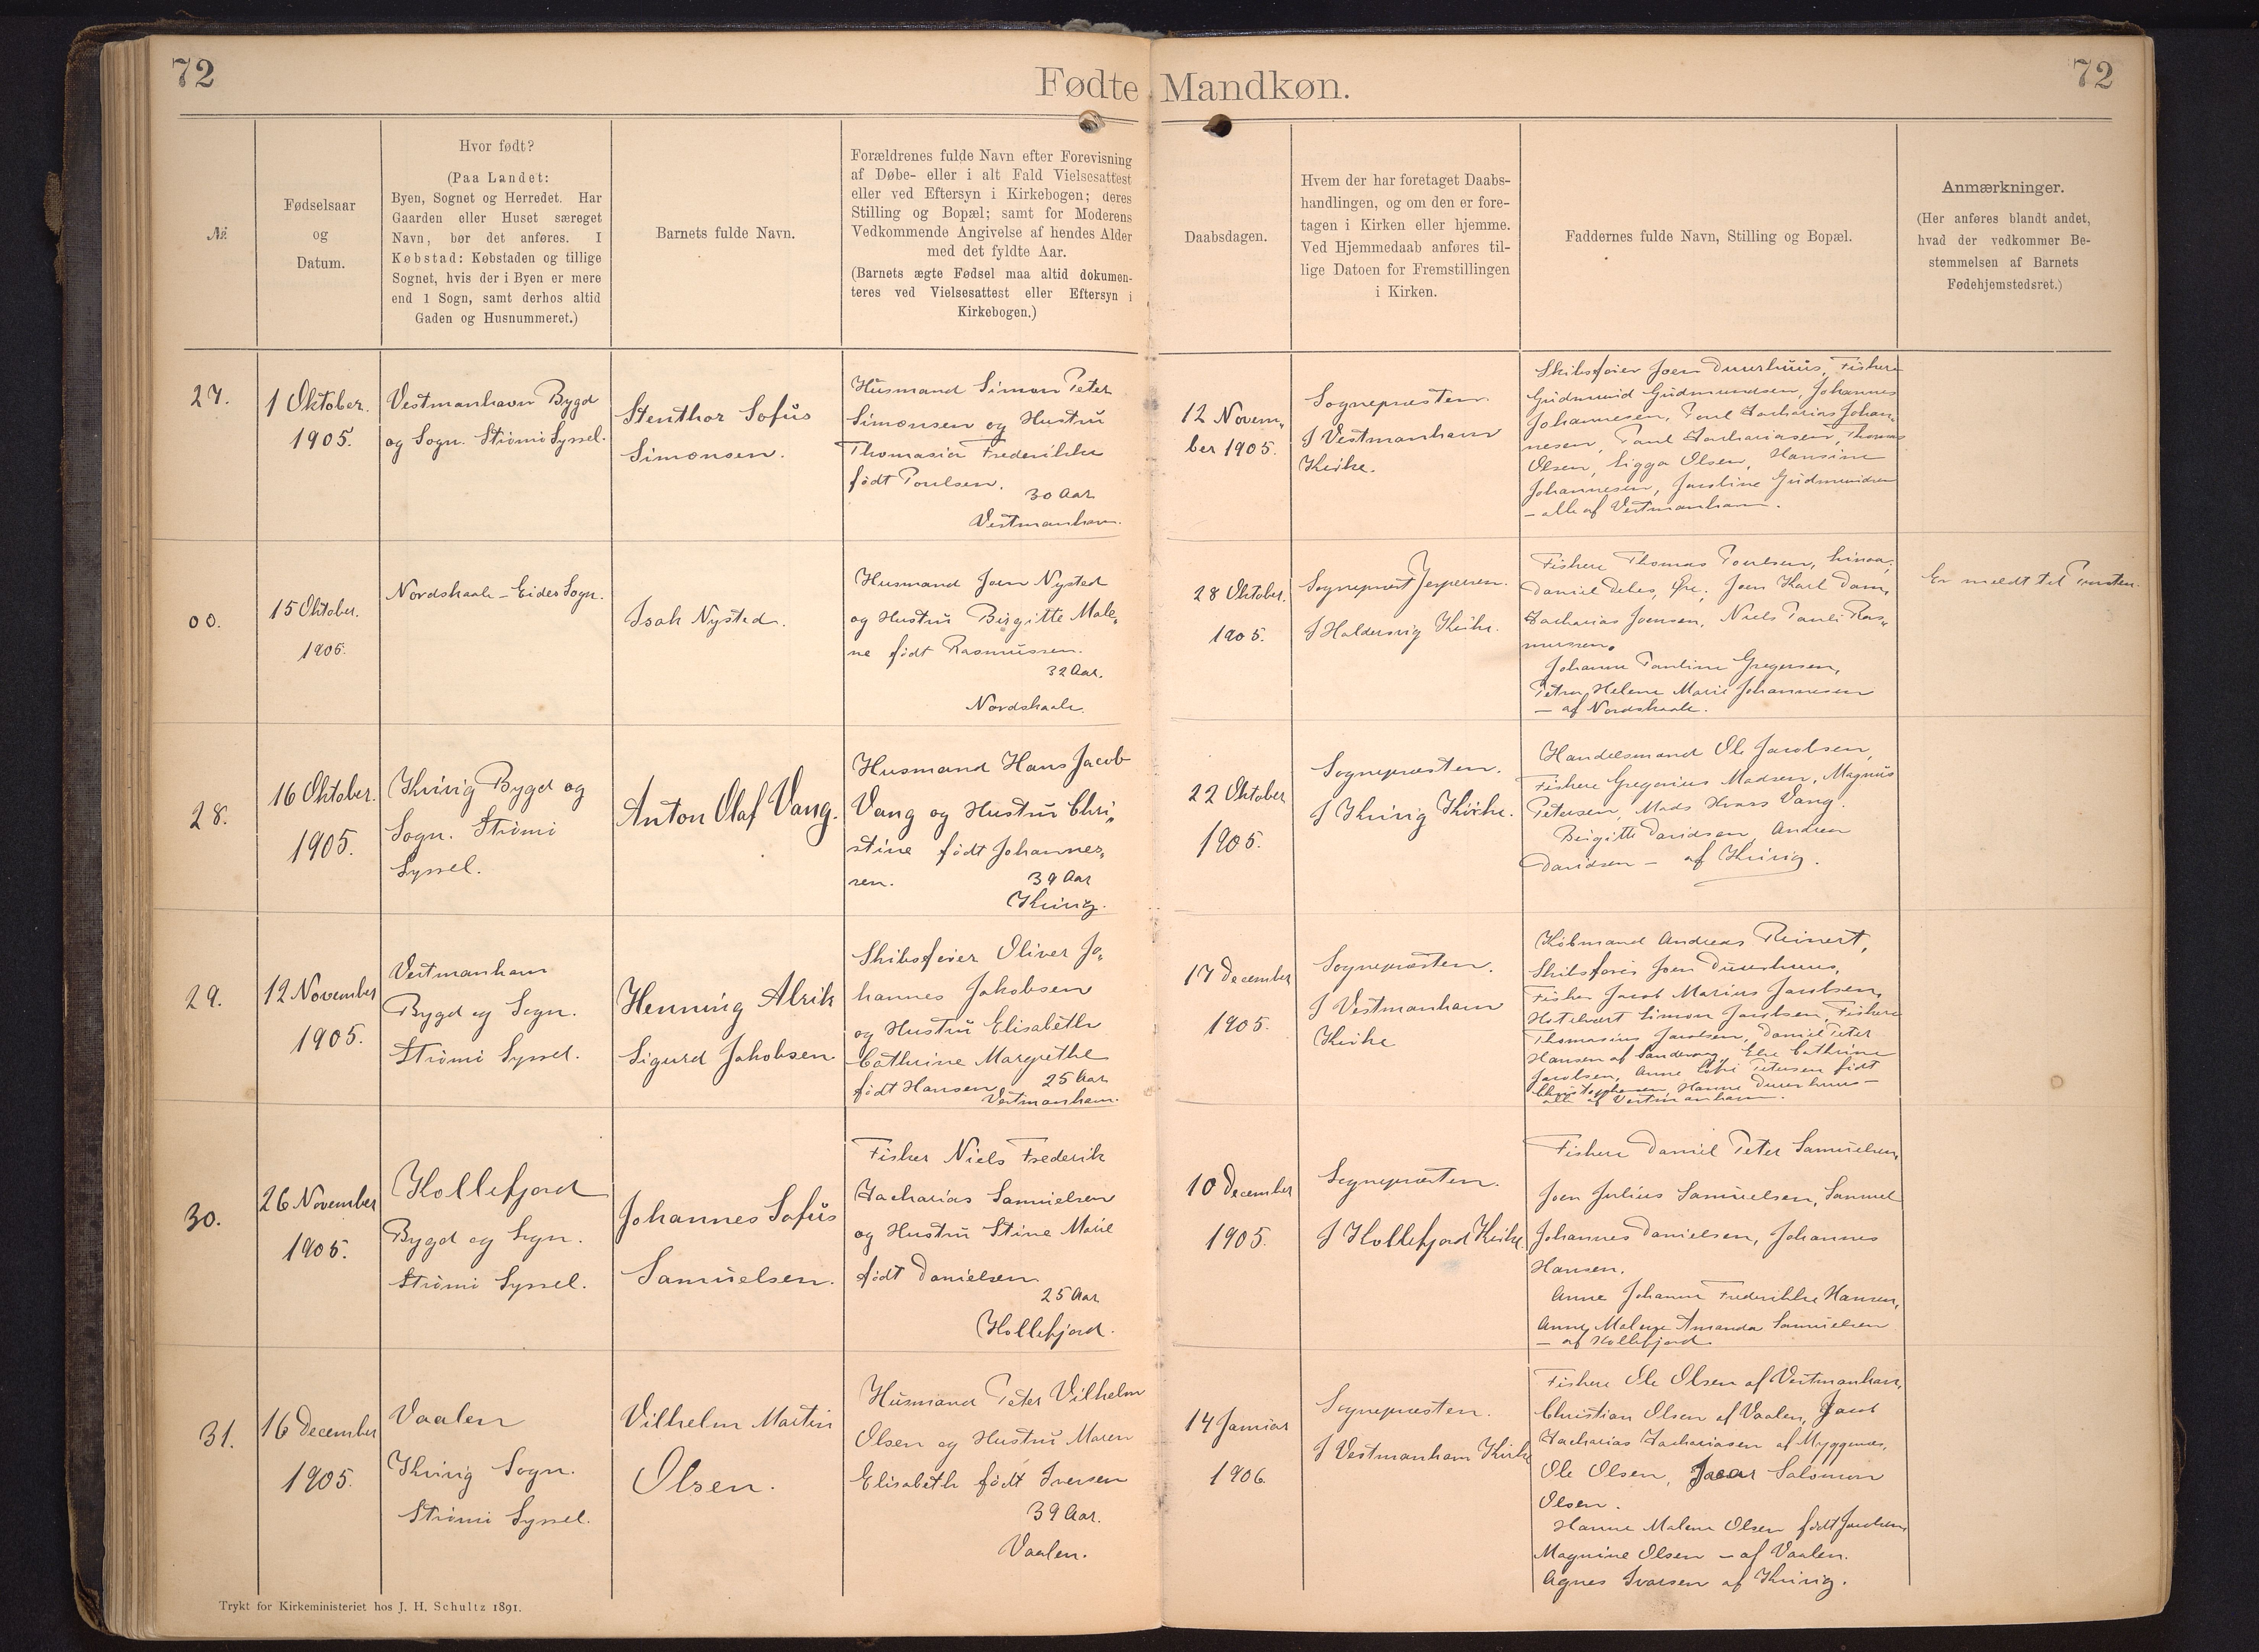 72
Fødte Mandkøn.
72
№
Fødselsaar
og
Datum.
Hvor født?
(Paa Landet:
Byen, Sognet og Herredet. Har
Gaarden eller Huset særeget
Navn, bør det anføres. I
Købstad: Købstaden og tillige
Sognet, hvis der i Byen er mere
end 1 Sogn, samt derhos altid
Gaden og Husnummeret.)
Barnets fulde Navn.
Forældrenes fulde Navn efter Forevisning
af Døbe- eller i alt Fald Vielsesattest
eller ved Eftersyn i Kirkebogen; deres
Stilling og Bopæl; samt for Moderens
Vedkommende Angivelse af hendes Alder
med det fyldte Aar.
(Barnets ægte Fødsel maa altid dokumen-
teres ved Vielsesattest eller Eftersyn i
Kirkebogen.)
Daabsdagen.
Hvem der har foretaget Daabs-
handlingen, og om den er fore-
tagen i Kirken eller hjemme.
Ved Hjemmedaab anføres til-
lige Datoen for Fremstillingen
i Kirken.
Faddernes fulde Navn, Stilling og Bopæl.
Anmærkninger.
(Her anføres blandt andet,
hvad der vedkommer Be-
stemmelsen af Barnets
Fødehjemstedsret.)
27.
1 Oktober.
1905.
Vestmanhavn Bygd
og Sogn. Strömö Syssel.
Stenthor Sofus
Simonsen.
Husmand Simon Peter
Simonsen og Hustru
Thomasia Frederikke
født Poulsen.
30 Aar
Vestmanhavn.
12 Novem-
ber 1905.
Sognepræsten.
I Vestmanhavn
Kirke.
Skibsfører Joen Duurhuus, Fiskere
Gudmund Gudmundsen, Johannes
Johannesen, Poul Zacharias Johan-
nesen, Poul Zachariasen, Thomas
Olsen, Sigga Olsen, Hansine
Johannesen, Jacobine Gudmundsen
– alle af Vestmanhavn.
00.
15 Oktober.
1905.
Nordskaale – Eides Sogn.
Isak Nysted.
Husmand Joen Nysted
og Hustru Birgitte Male-
ne født Rasmussen.
32 Aar.
Nordskaale.
28 Oktober.
1905.
Sognepræst Jespersen.
I Haldersvig Kirke.
Fiskere Thomas Poulsen,
Daniel Debes, Joen Karl Dam,
Zacharias Joensen, Niels Pauli Ras-
mussen.
Johanne Pauline Gregersen,
Petra Helene Marie Johannesen
– af Nordskaale.
Er meldt til
28.
16 Oktober.
1905.
Kvivig Bygd og
Sogn. Strömö
Syssel.
Anton Olaf Vang.
Husmand Hans Jacob
Vang og Hustru Chri-
stine født Johannes-
sen.
39 Aar
Kvivig.
22 Oktober
1905.
Sognepræsten.
I Kvivig Kirke.
Handelsmand Ole Jacobsen,
Fiskere Gregorius Madsen, Magnus
Petersen, Mads Hans Vang.
Birgitte Davidsen, Andrea
Davidsen – af Kvivig.
29.
12 November
1905.
Vestmanhavn
Bygd og Sogn.
Strömö Syssel.
Henning Alrik
Sigurd Jakobsen.
Skibsfører Oliver Jo-
hannes Jakobsen
og Hustru Elisabeth
Cathrine Margrethe
født Hansen 25 Aar
Vestmanhavn.
17 December
1905.
Sognepræsten.
I Vestmanhavn
Kirke
Købmand Andreas Reinert,
Skibsfører Joen Duurhuus,
Fisker Jacob Marius Jacobsen,
Hotelvært Simon Jacobsen, Fiskere
Thomasius Jacobsen, Daniel Peter
Hansen af Sandevaag, Else Cathrine
Jacobsen, Anne Sofie Petersen født
Christophersen, Hanne Duurhuus –
alle af Vestmanhavn.
30.
26 November
1905.
Kollefjord
Bygd og Sogn.
Strömö Syssel.
Johannes Sofus
Samuelsen.
Fisker Niels Frederik
Zacharias Samuelsen
og Hustru Stine Marie
født Danielsen
25 Aar
Kollefjord.
10 December
1905.
Sognepræsten.
I Kollefjord Kirke.
Fiskere Daniel Peter Samuelsen,
Joen Julius Samuelsen, Samuel
Johannes Danielsen, Johannes
Hansen.
Anne Johanne Frederikke Hansen,
Anne Malene Amanda Samuelsen
– af Kollefjord.
31.
16 December
1905.
Vaalen
Kvivig Sogn.
Strömö Syssel.
Vilhelm Martin
Olsen.
Husmand Peter Vilhelm
Olsen og Hustru Maren
Elisabeth født Iversen
39 Aar.
Vaalen.
14 Januar
1906.
Sognepræsten.
I Vestmanhavn Kirke
Fiskere Ole Olsen af Vestmanhavn,
Christian Olsen af Vaalen, Jacob
Zacharias Zachariasen af Myggenæs,
Ole Olsen, Salomon
Olsen.
Hanne Malene Olsen født Jacobsen,
Magnine Olsen – af Vaalen.
Agnes Ivarsen af Kvivig.
Trykt for Kirkeministeriet hos J. H. Schultz 1891.